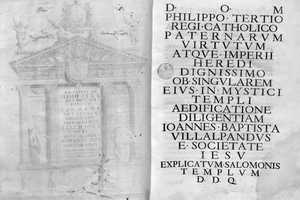 D · O · M
PHILIPPO · TERTIO
REGI · CATHOLICO
PATERNARVM
VIRTVTVM
ATQVE · IMPERII
HEREDI
DIGNISSIMO
OB · SINGVLAREM
EIVS · IN · MYSTICI
TEMPLI
AEDIFICATIONE
DILIGENTIAM
IOANNES · BAPTISTA
VILLALPANDVS
E · SOCIETATE
IESV
EXPLICATVM · SALOMONIS
TEMPLVM
D · D · Q